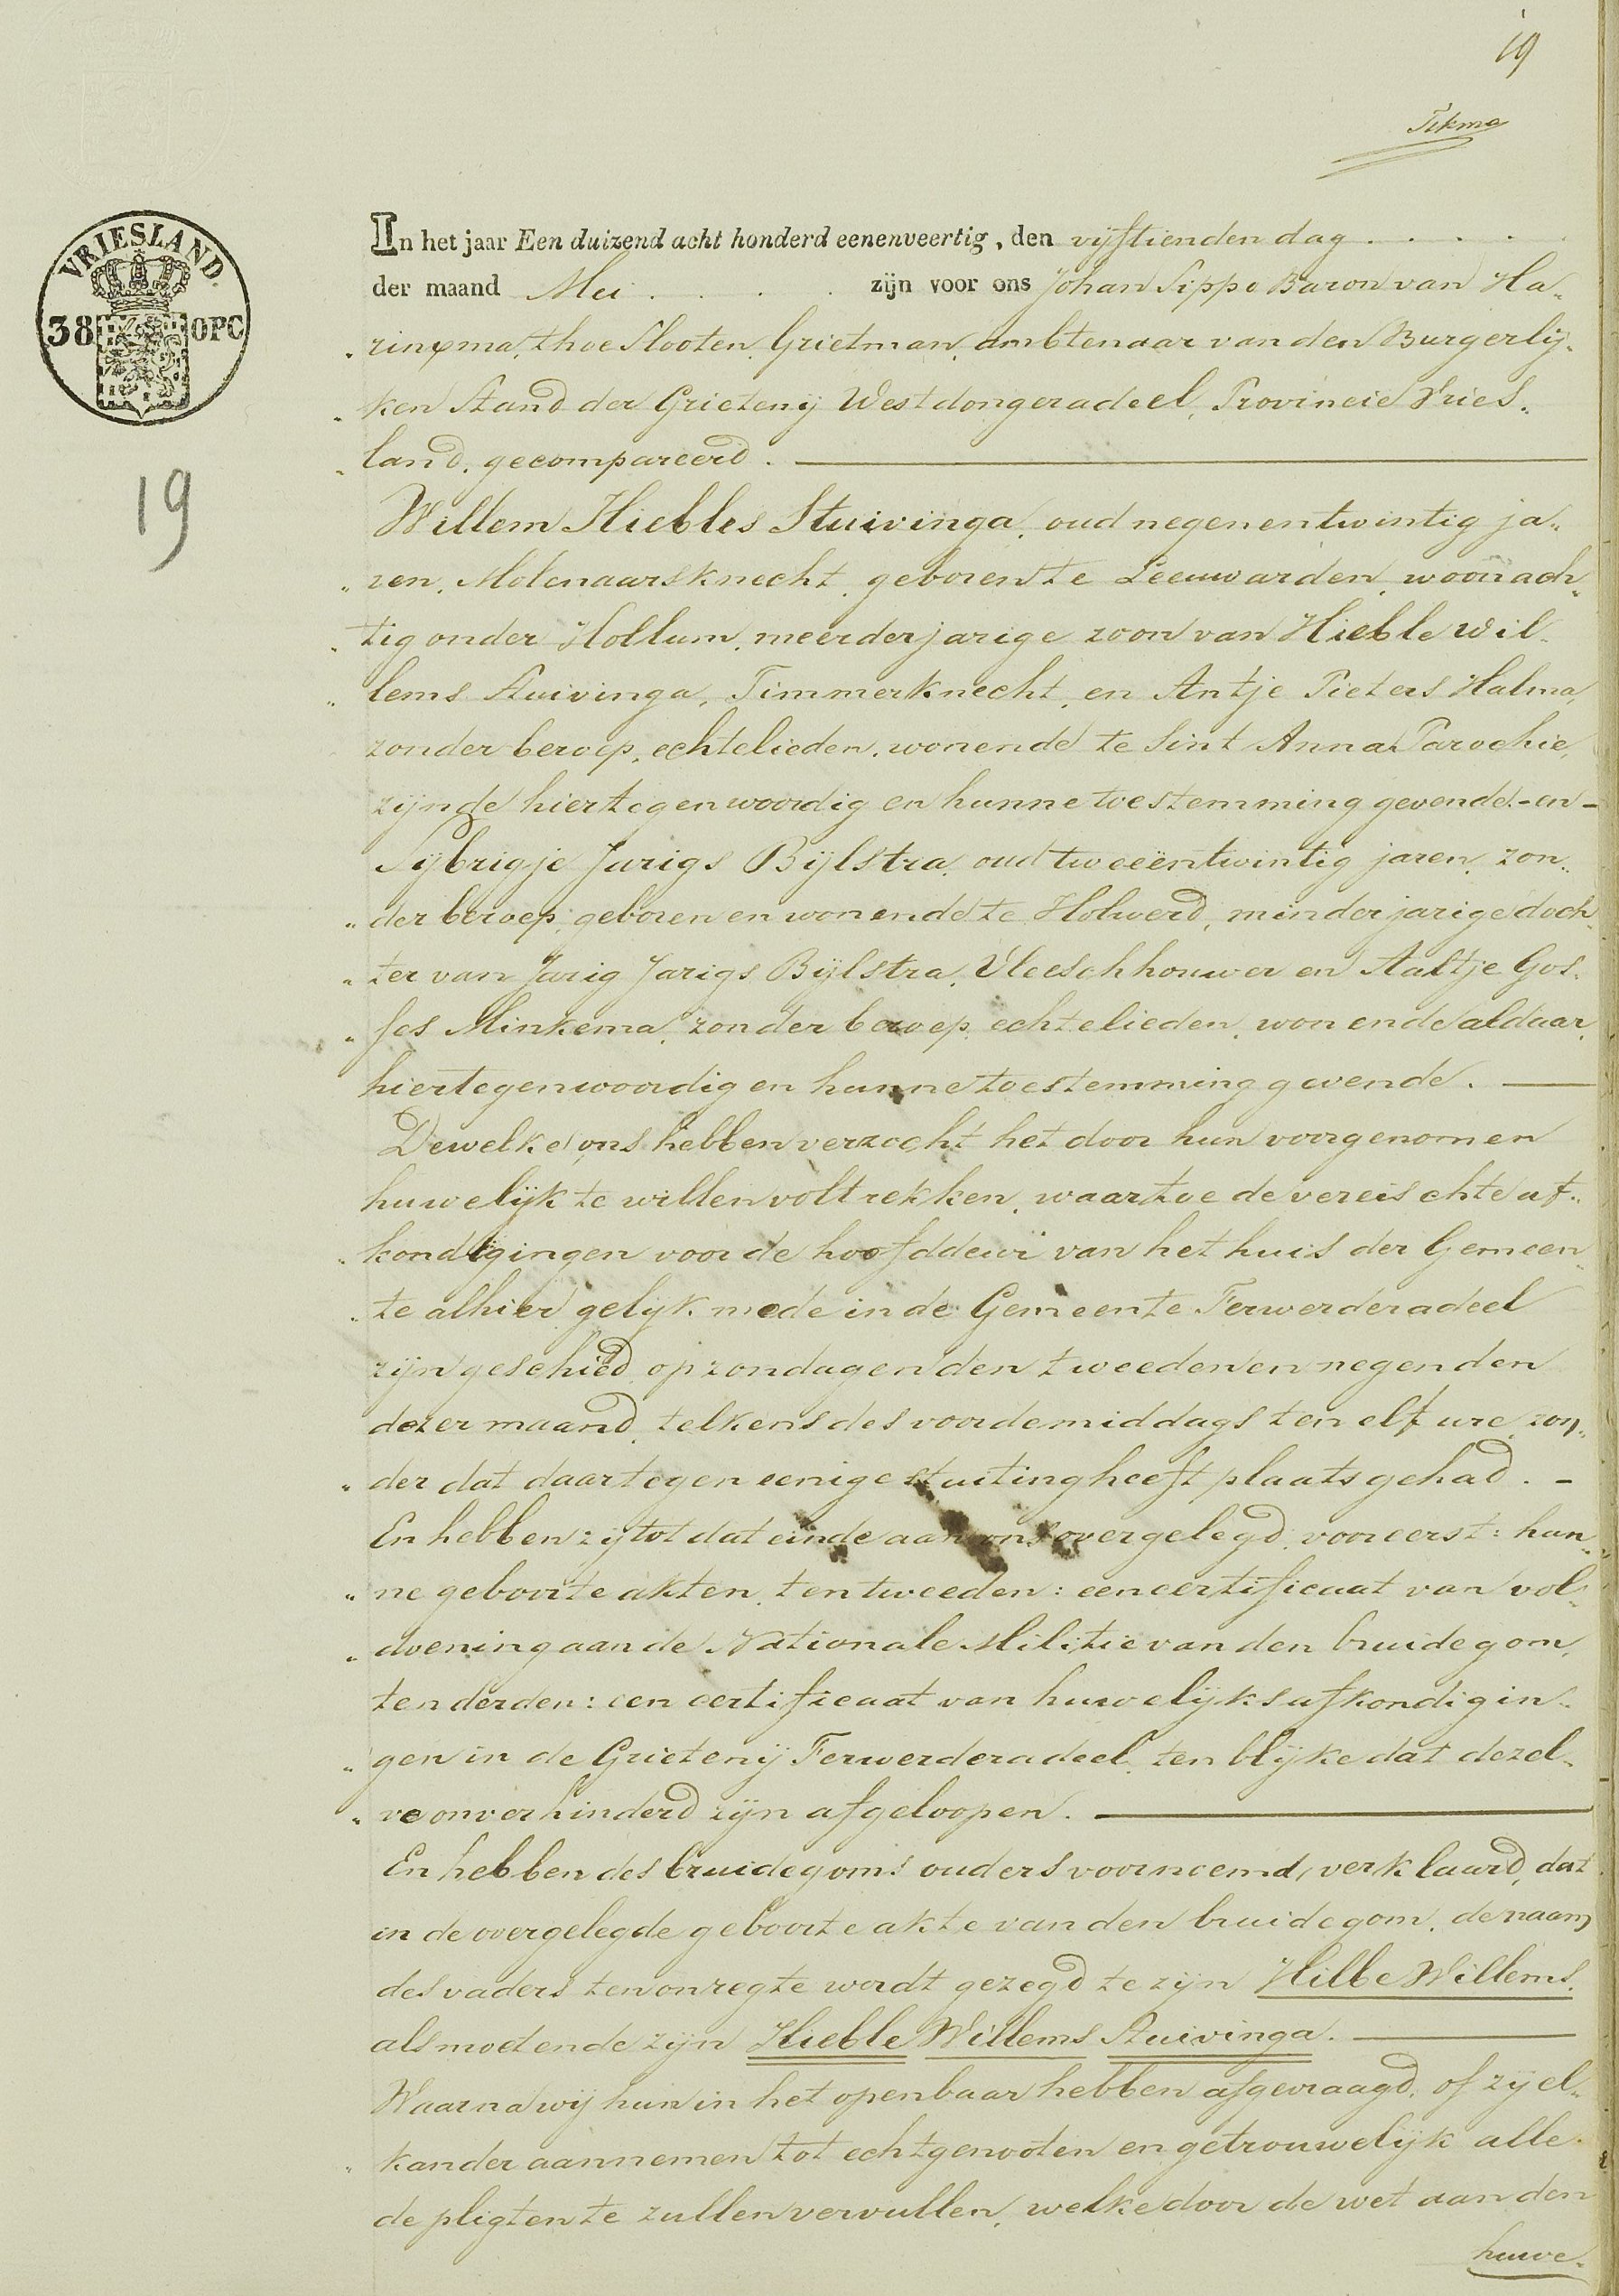 19
Tikma
VRIESLAND.
38 OPC
19
In het jaar Een duizend acht honderd eenenveertig, den vijftienden dag . . . .
der maand Mei . . . . zijn voor ons Johan Sippo Baron van Ha„
„rinxma, thoe Slooten, Grietman, ambtenaar van den Burgerlij„
„ken Stand der Grietenij Westdongeradeel, Provincie Vries„
„land, gecompareerd. —
Willem Hiebles Stuivinga, oud negenentwintig ja„
„ren, Molenaarsknecht, geboren te Leeuwarden, woonach„
„tig onder Hollum, meerderjarige zoon van Hieble Wil„
„lems Stuivinga, Timmerknecht, en Antje Pieters Halma,
zonder beroep, echtelieden, wonende te Sint Anna Parochie,
zijnde hiertegenwoordig en hunne toestemming gevende - en -
Sijbrigje Jarigs Bijlstra, oud tweeëntwintig jaren, zon„
„der beroep, geboren en wonende te Holwerd, minderjarige doch„
„ter van Jarig Jarigs Bijlstra, Vleeschhouwer en Aaltje Gos„
„ses Minkema, zonder beroep, echtelieden, wonende aldaar,
hiertegenwoordig en hunne toestemming gevende. —
Dewelke ons hebben verzocht het door hun voorgenomen
huwelijk te willen voltrekken, waartoe de vereischte af„
„kondigingen voor de hoofddeur van het huis der Gemeen„
„te alhier gelijk mede in de Gemeente Ferwerderadeel
zijn geschied op zondagen den tweeden en negenden
dezer maand, telkens des voordemiddags ten elf ure, zon„
„der dat daartegen eenige stuiting heeft plaats gehad. -
En hebben zij tot dat einde aan ons overgelegd, vooreerst: hun„
„ne geboorte akten, ten tweeden: een certificaat van vol„
„doening aan de Nationale Militie van den bruidegom,
ten derden: een certificaat van huwelijksafkondigin„
„gen in de Grietenij Ferwerderadeel, ten blijke dat dezel„
„ve onverhinderd zijn afgeloopen. —
En hebben des bruidegoms ouders voornoemd, verklaard, dat
in de overgelegde geboorte akte van den bruidegom, de naam
des vaders ten onregte wordt gezegd te zijn Hilbe Willems,
als moetende zijn Hieble Willems Stuivinga. —
Waarna wij hun in het openbaar hebben afgevraagd, of zij el„
„kander aannemen tot echtgenooten en getrouwelijk alle
de pligten te zullen vervullen, welke door de wet aan den
huwe„